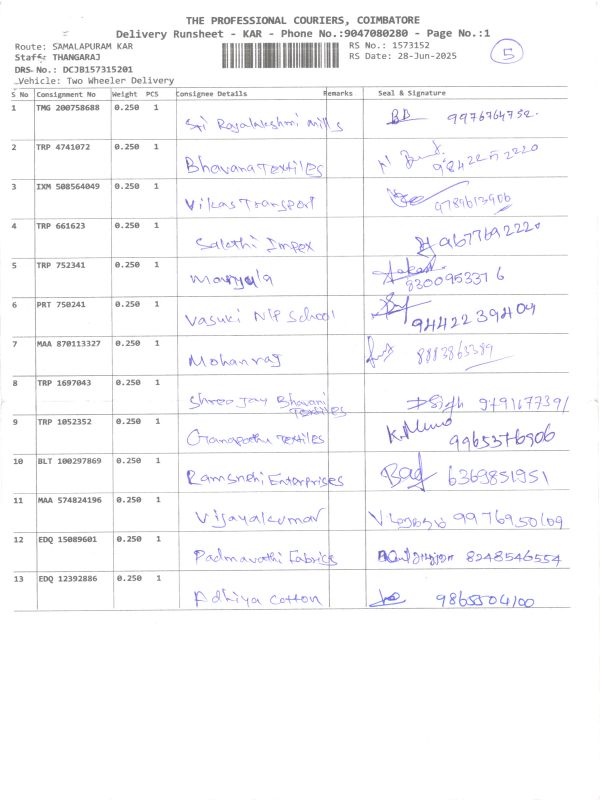 THE PROFESSIONAL COURIERS, COIMBATORE
Delivery Runsheet - KAR - Phone No.:9047080280 - Page No.:1
Route: SAMALAPURAM KAR RS No.: 1573152 5
Staff: THANGARAJ RS Date: 28-Jun-2025
DRS No.: DCJB157315201
Vehicle: Two Wheeler Delivery
S No Consignment No Weight PCS Consignee Details Remarks Seal & Signature
1 TMG 200758688 0.250 1
Sri Rajalakshmi mills 9976764752.
2 TRP 4741072 0.250 1
Bhavana Textiles
3 IXM 508564049 0.250 1
Vikas Transport 9789613906
4 TRP 661623 0.250 1
Salethi Impex 9677692220
5 TRP 752341 0.250 1
Manjula 8300953376
6 PRT 750241 0.250 1
Vasuki N/P School 9442239404
7 MAA 870113327 0.250 1
Mohanraj 8883863389
8 TRP 1697043 0.250 1
Shree Jay Bhavani
Textiles
9 TRP 1052352 0.250 1
Ganapathi Textiles 9965376906
10 BLT 100297869 0.250 1
Ramsnehi Enterprises 6369851951
11 MAA 574824196 0.250 1
Vijayakumar
12 EDQ 15089601 0.250 1
Padmavathi Fabrics 8248546554
13 EDQ 12392886 0.250 1
Adhiya Cotton 9865504100